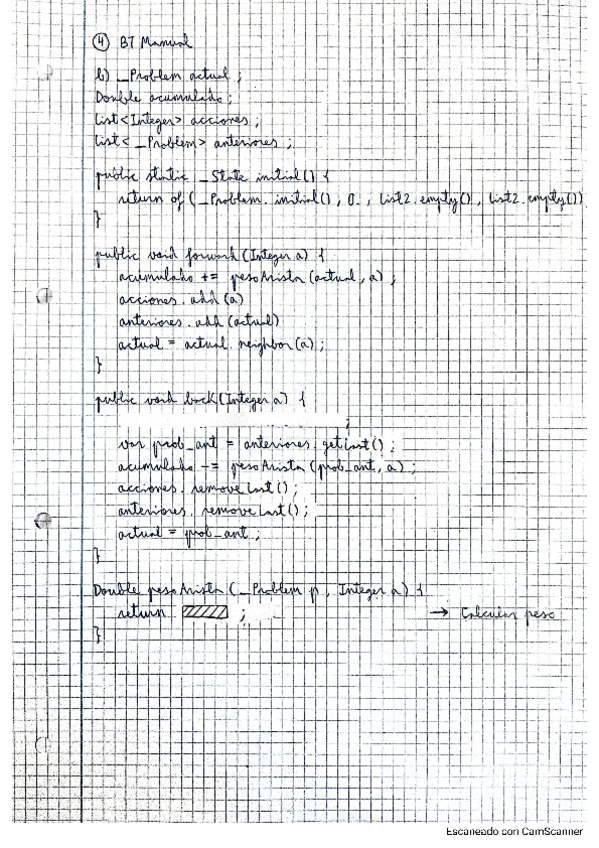 ④ BT Manual
b) _Problem actual ;
Double acumulado ;
List<Integer> acciones ;
List<_Problem> anteriores ;
public static _State initial() {
return of (_Problem.initial(), 0., List2.empty(), List2.empty())
}
public void forward (Integer a) {
acumulado += pesoArista (actual, a) ;
acciones.add (a)
anteriores.add (actual)
actual = actual.neighbor(a) ;
}
public void back (Integer a) {
;
var prob_ant = anteriores.getLast() ;
acumulado -= pesoArista (prob_ant, a) ;
acciones.removeLast() ;
anteriores.removeLast() ;
actual = prob_ant ;
}
Double pesoArista (_Problem p, Integer a) {
return ; → Calcular peso
}
Escaneado con CamScanner